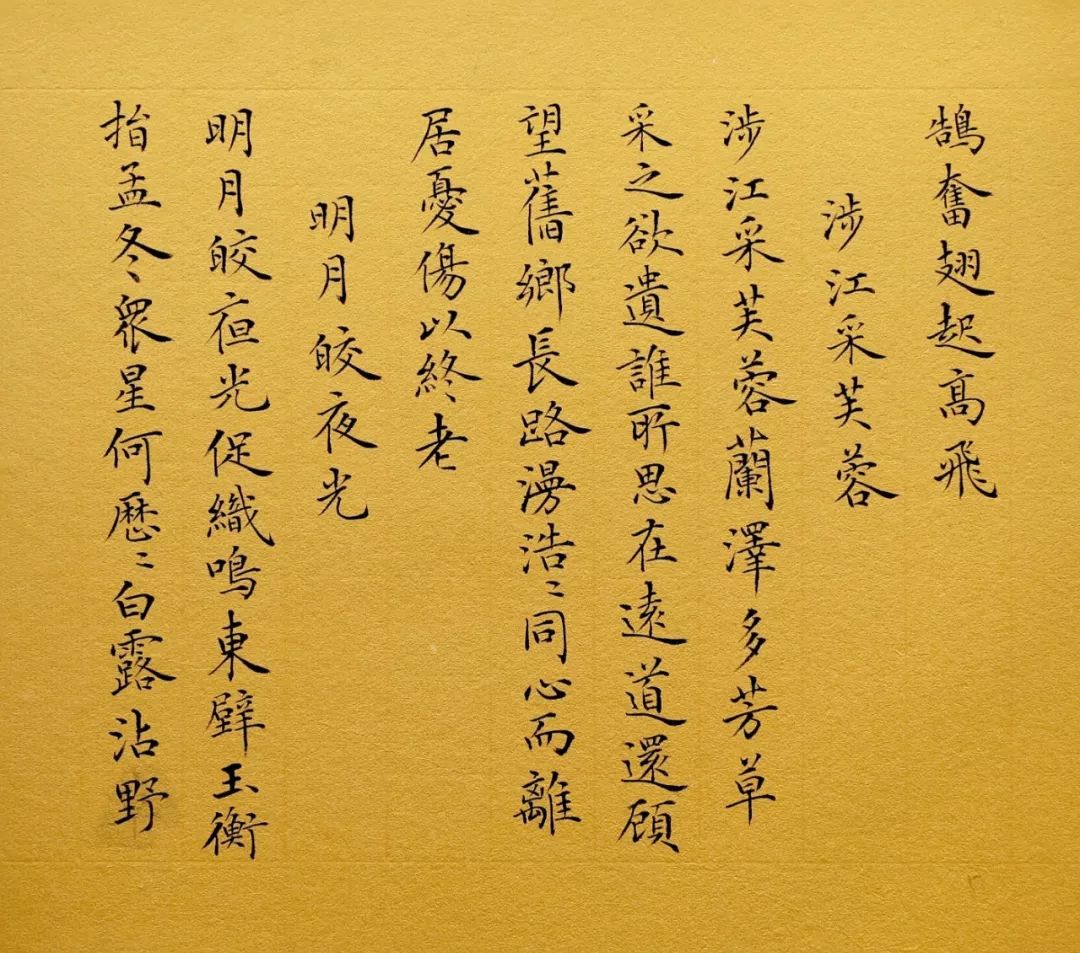 鵠奮翅起高飛
涉江采芙蓉
涉江采芙蓉蘭澤多芳草
采之欲遺誰所思在遠道還顧
望舊鄉長路漫浩〻同心而離
居憂傷以終老
明月皎夜光
明月皎夜光促織鳴東壁玉衡
指孟冬眾星何歷〻白露沾野